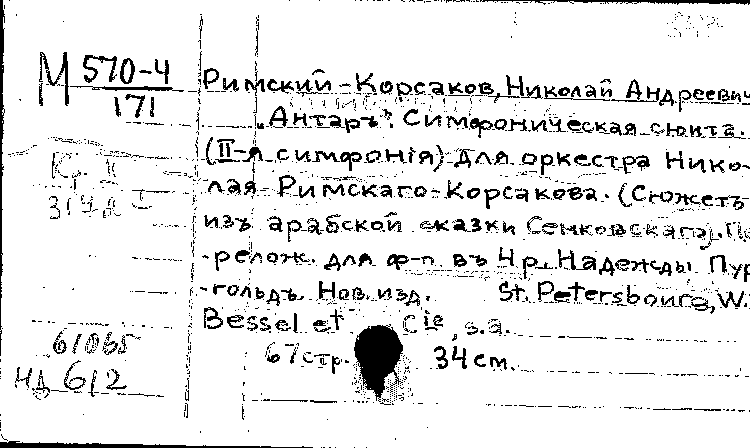 М 570-4
171
Римский-Корсаков, Николай Андреевич
„Антаръ“. Симфоническая сюита.
(II-я симфонія) для оркестра Нико-
лая Римскаго-Корсакова. (Сюжетъ
изъ арабской сказки Сенковскаго). Пе
-релож. для ф-п. въ 4 р. Надежды Пур
-гольдъ. Нов. изд. St. Petersbourg, W.
Bessel et Cie, s.a.
67 стр. 34 см.
Кр. II
61065
НД 612